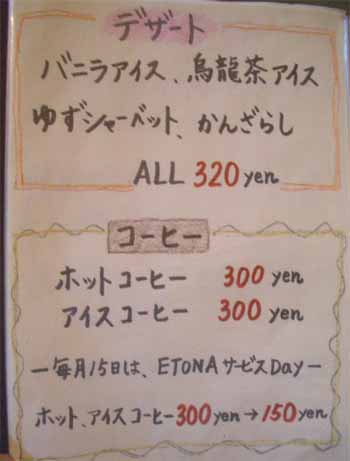 デザート
バニラアイス、烏龍茶アイス
ゆずシャーベット、かんざらし
ALL 320 yen
コーヒー
ホットコーヒー 300 yen
アイスコーヒー 300 yen
ー毎月15日は、ETONAサービスDayー
ホット、アイスコーヒー300yen→150yen